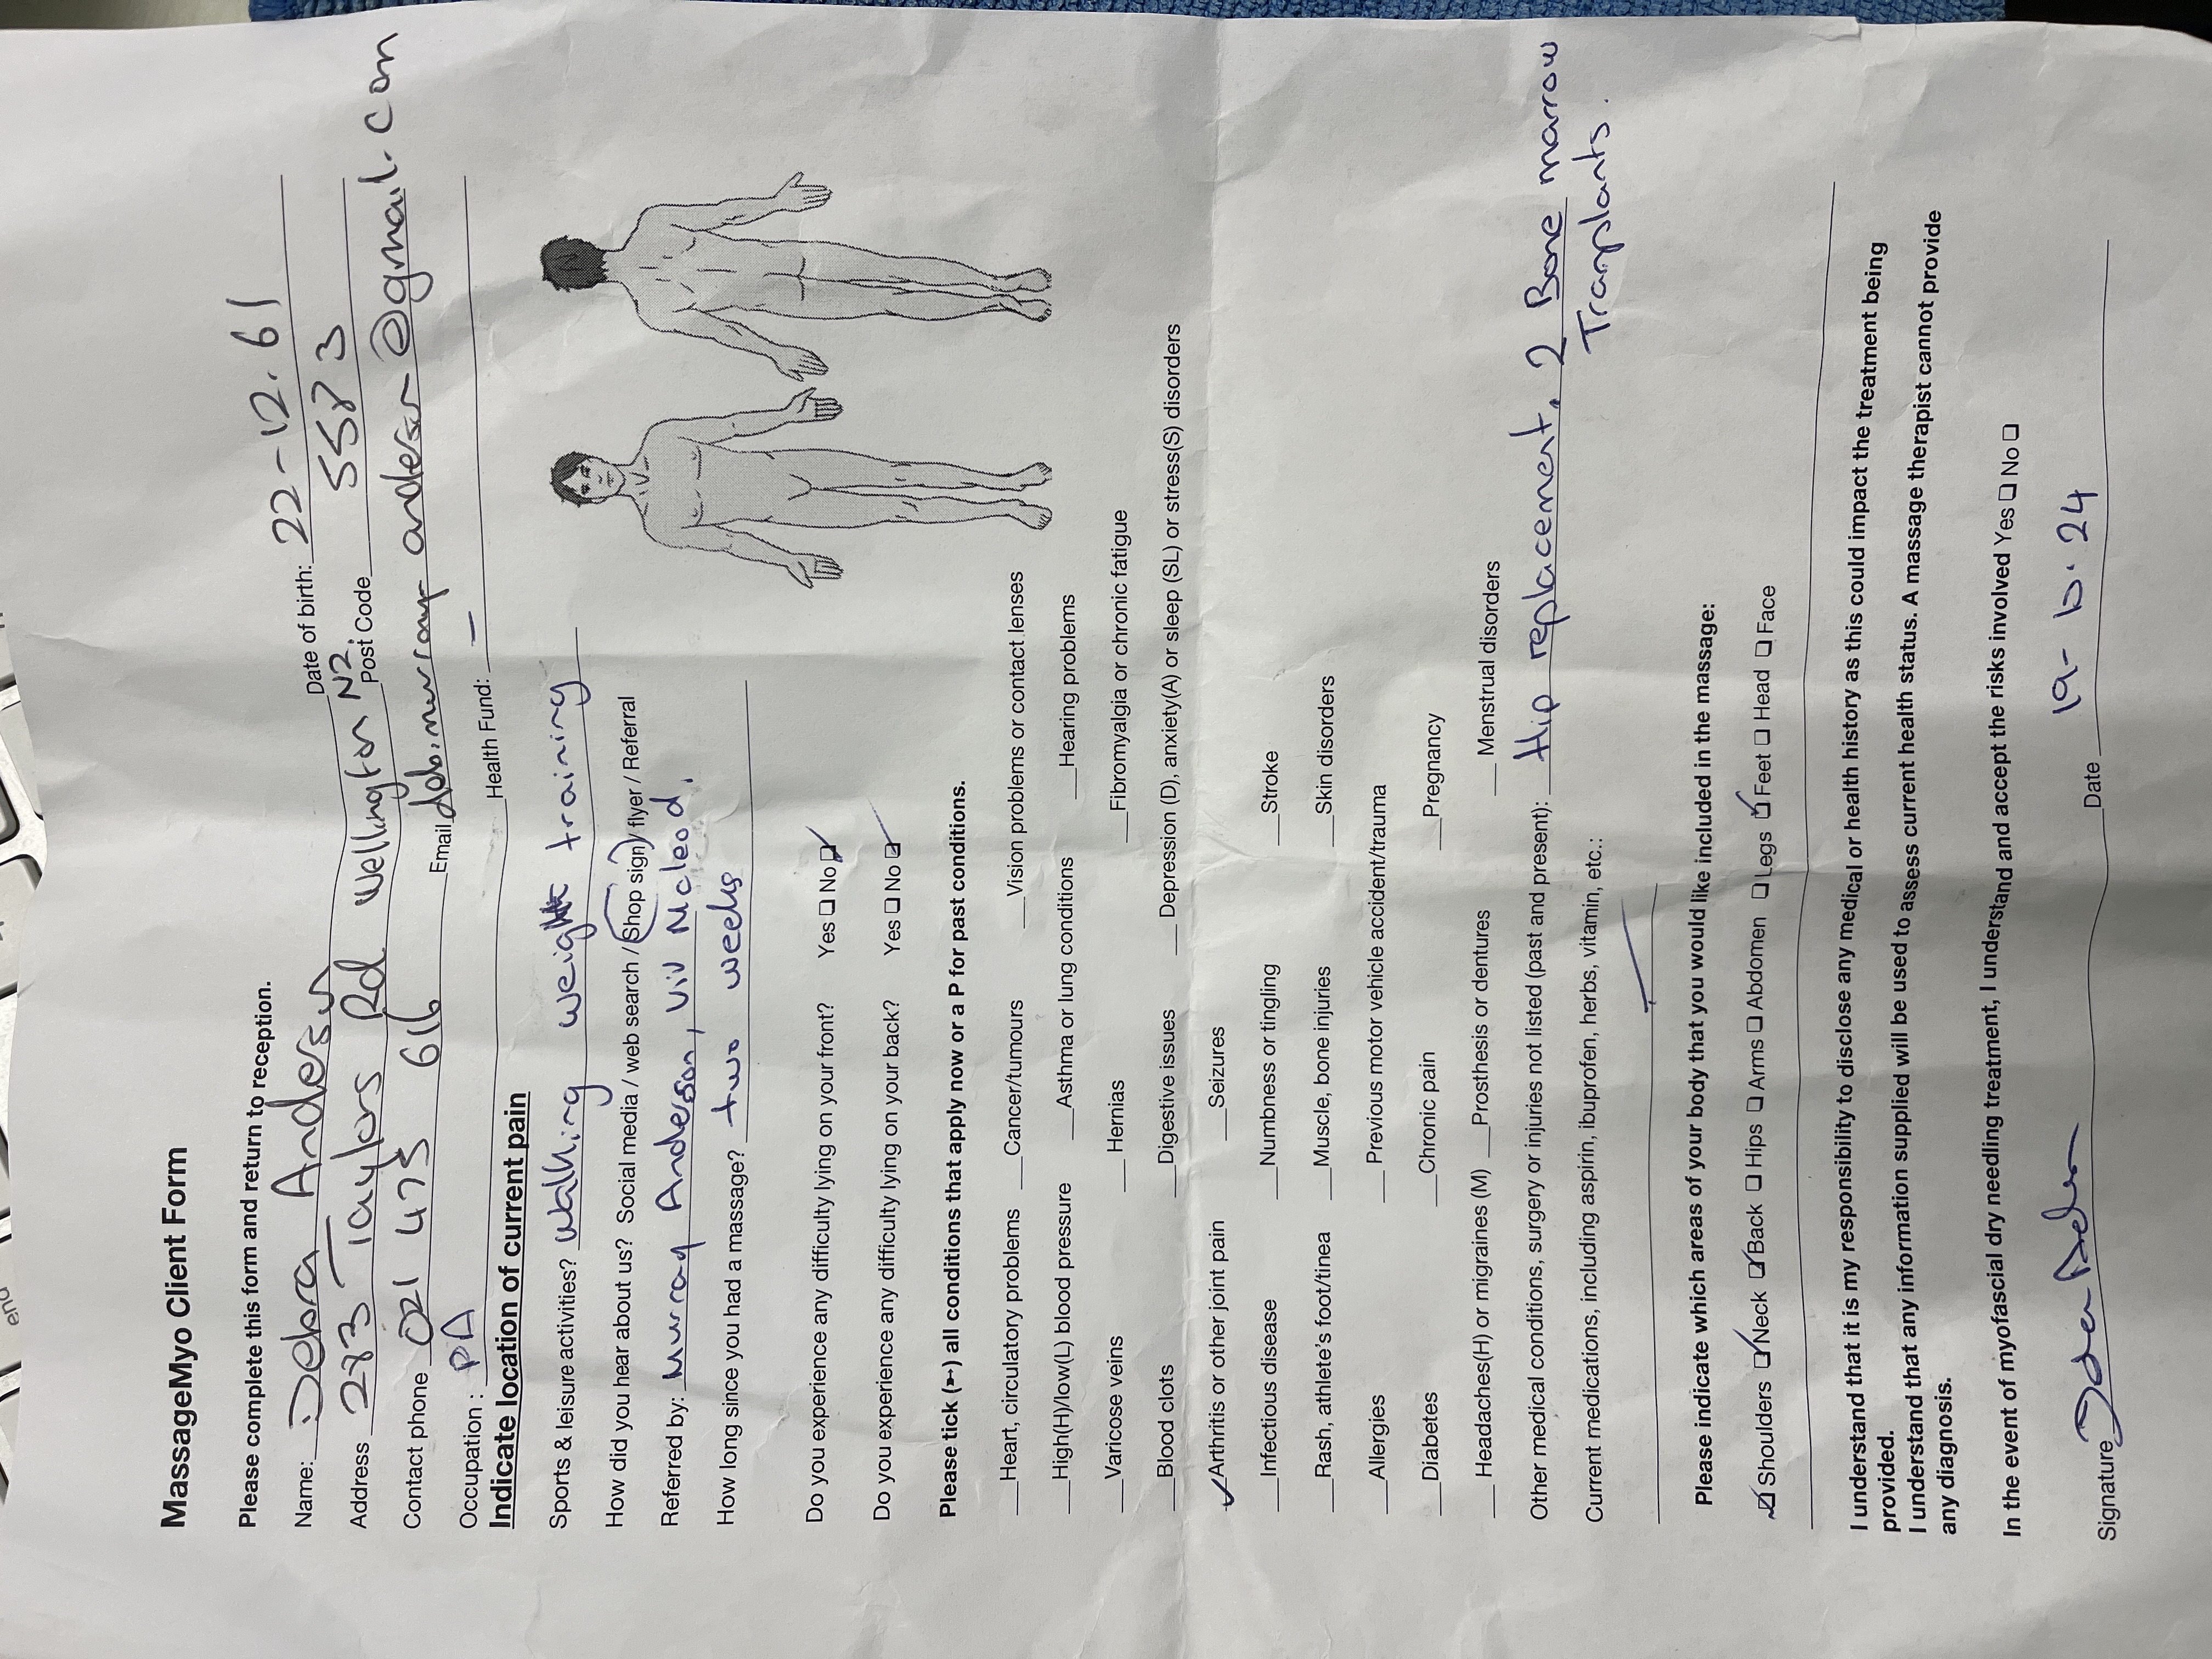 MassageMyo Client Form
Please complete this form and return to reception.
Name: Debra Anderson Date of birth: 22-12.61
Address 283 Taylors Rd Wellington NZ. Post Code 5583
Contact phone 021 475 616 Email debimurray anderson@gmail.com
Occupation : PA Health Fund: —
Indicate location of current pain
Sports & leisure activities? Walking weight training
How did you hear about us? Social media / web search / Shop sign / flyer / Referral
Referred by: Murray Anderson, Viv Mcleod.
How long since you had a massage? two weeks
Do you experience any difficulty lying on your front? Yes ❑ No ☑
Do you experience any difficulty lying on your back? Yes ❑ No ☑
Please tick (➳) all conditions that apply now or a P for past conditions.
__Heart, circulatory problems __Cancer/tumours __Vision problems or contact lenses
__High(H)/low(L) blood pressure __Asthma or lung conditions __Hearing problems
__Varicose veins __Hernias __Fibromyalgia or chronic fatigue
__Blood clots __Digestive issues __Depression (D), anxiety(A) or sleep (SL) or stress(S) disorders
✓Arthritis or other joint pain __Seizures
__Infectious disease __Numbness or tingling __Stroke
__Rash, athlete's foot/tinea __Muscle, bone injuries __Skin disorders
__Allergies __Previous motor vehicle accident/trauma
__Diabetes __Chronic pain __Pregnancy
__Headaches(H) or migraines (M) __Prosthesis or dentures __Menstrual disorders
Other medical conditions, surgery or injuries not listed (past and present): Hip replacement, 2 Bone marrow
Transplants.
Current medications, including aspirin, ibuprofen, herbs, vitamin, etc.:
Please indicate which areas of your body that you would like included in the massage:
☑ Shoulders ☑ Neck ☑ Back ❑ Hips ❑ Arms ❑ Abdomen ❑ Legs ☑ Feet ❑ Head ❑ Face
I understand that it is my responsibility to disclose any medical or health history as this could impact the treatment being
provided.
I understand that any information supplied will be used to assess current health status. A massage therapist cannot provide
any diagnosis.
In the event of myofascial dry needling treatment, I understand and accept the risks involved Yes ❑ No ❑
Signature Date